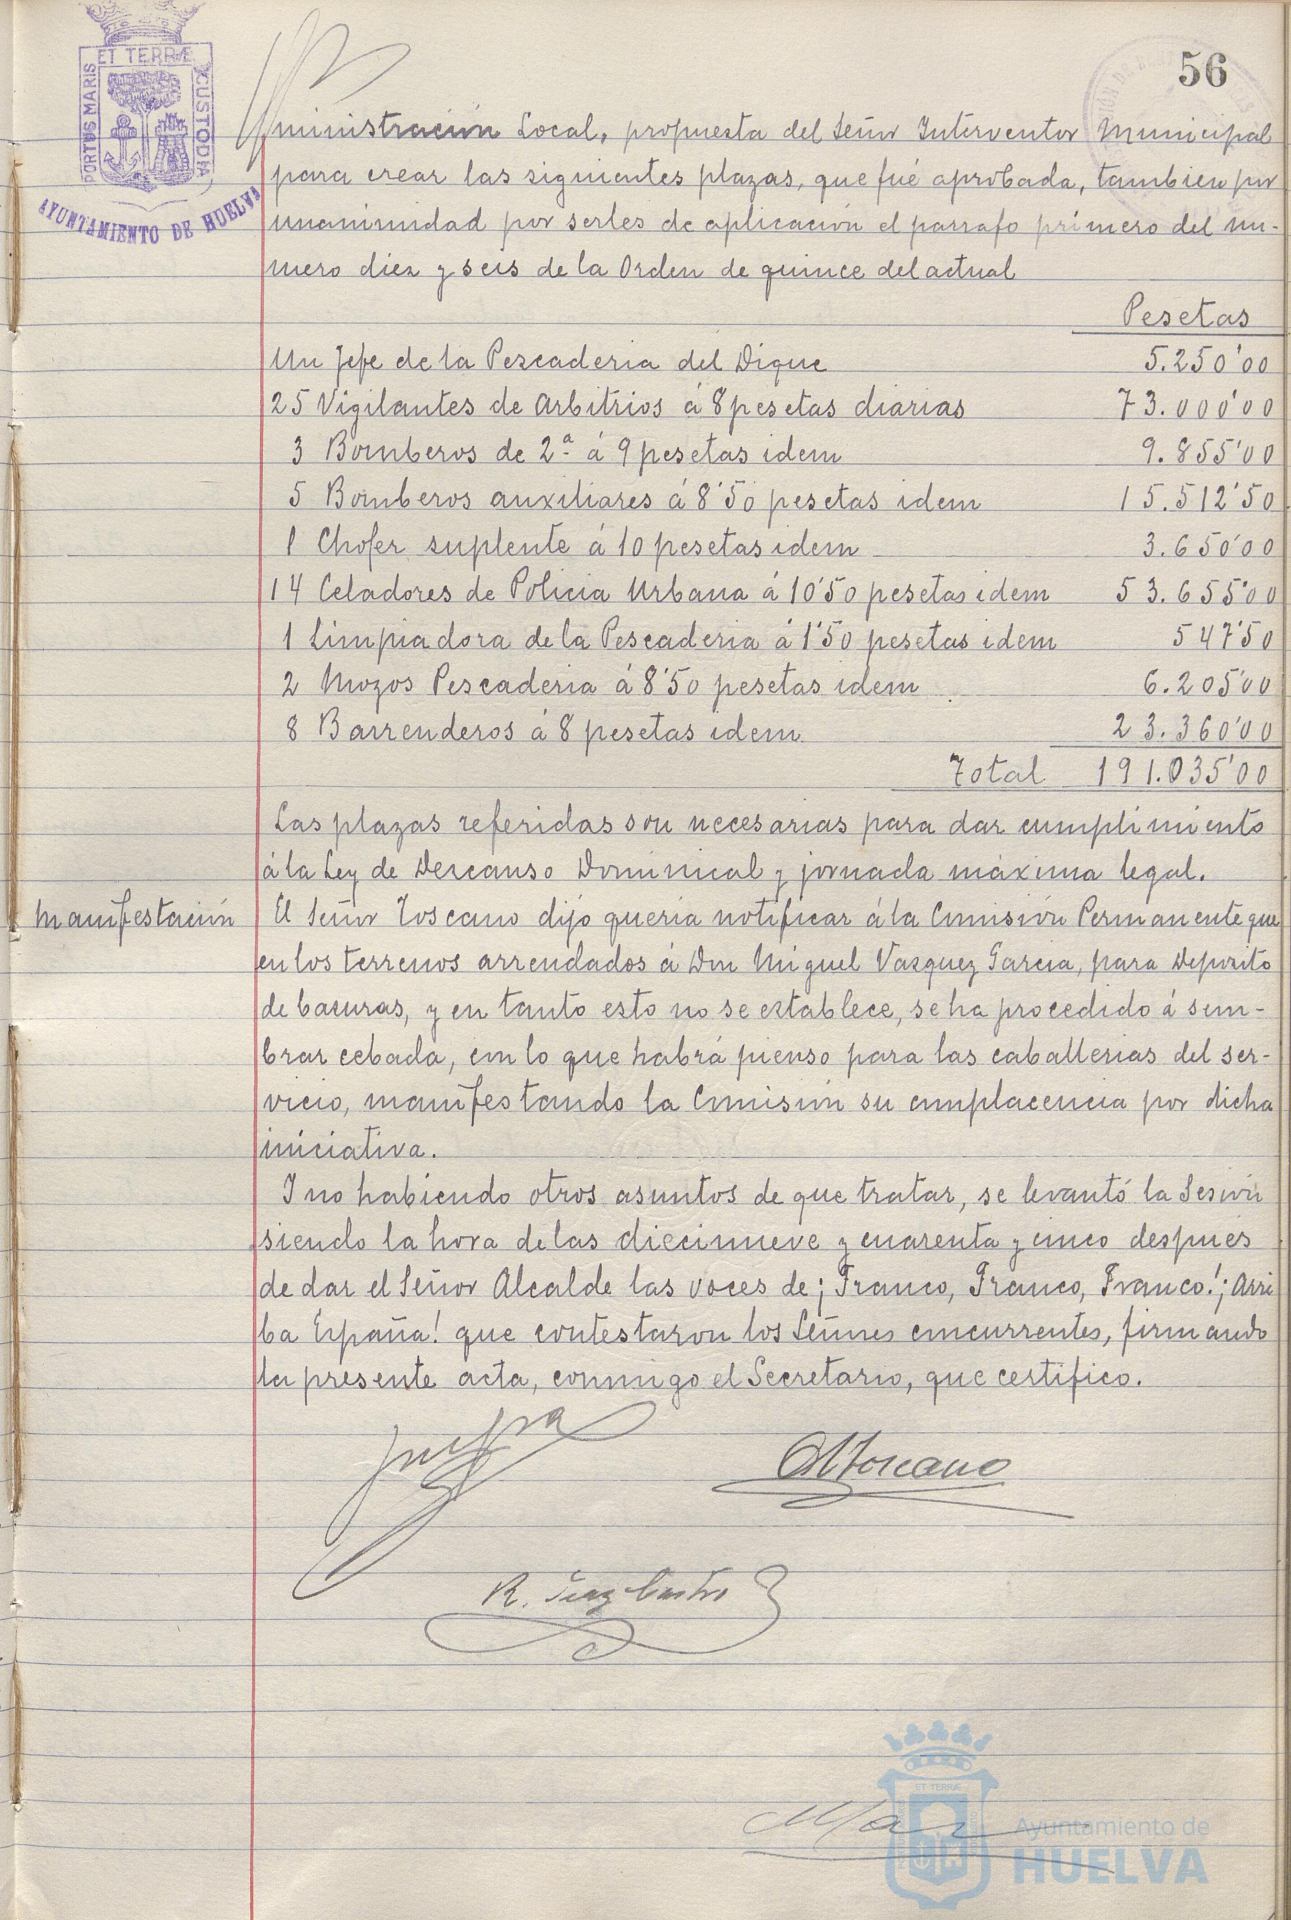 56
ET TERRÆ
PORTUS MARIS
CUSTODIA
AYUNTAMIENTO DE HUELVA
ministración Local, propuesta del Señor Interventor Municipal
para crear las siguientes plazas, que fué aprobada, tambien por
unanimidad por serles de aplicación el parrafo primero del nu-
mero diez y seis de la Orden de quince del actual
Pesetas
Un Jefe de la Pescaderia del Dique 5.250'00
25 Vigilantes de Arbitrios á 8 pesetas diarias 73.000'00
3 Bomberos de 2ª á 9 pesetas idem 9.855'00
5 Bomberos auxiliares á 8'50 pesetas idem 15.512'50
1 Chofer suplente á 10 pesetas idem 3.650'00
14 Celadores de Policia Urbana á 10'50 pesetas idem 53.655'00
1 Limpiadora de la Pescaderia á 1'50 pesetas idem 547'50
2 Mozos Pescaderia á 8'50 pesetas idem 6.205'00
8 Barrenderos á 8 pesetas idem 23.360'00
Total 191.035'00
Las plazas referidas son necesarias para dar cumplimiento
á la Ley de Descanso Dominical y jornada máxima legal.
Manifestación El Señor Toscano dijo queria notificar á la Comisión Permanente que
en los terrenos arrendados á Don Miguel Vazquez Garcia, para Deposito
de basuras, y en tanto esto no se establece, se ha procedido á sem-
brar cebada, con lo que habrá pienso para las caballerias del ser-
vicio, manifestando la Comisión su complacencia por dicha
iniciativa.
Y no habiendo otros asuntos de que tratar, se levantó la Sesión
siendo la hora de las diecinueve y cuarenta y cinco despues
de dar el Señor Alcalde las voces de ¡Franco, Franco, Franco! ¡Arri
ba España! que contestaron los Señores concurrentes, firmando
la presente acta, conmigo el Secretario, que certifico.
Toscano
R. Castro
ET TERRÆ
Ayuntamiento de
HUELVA